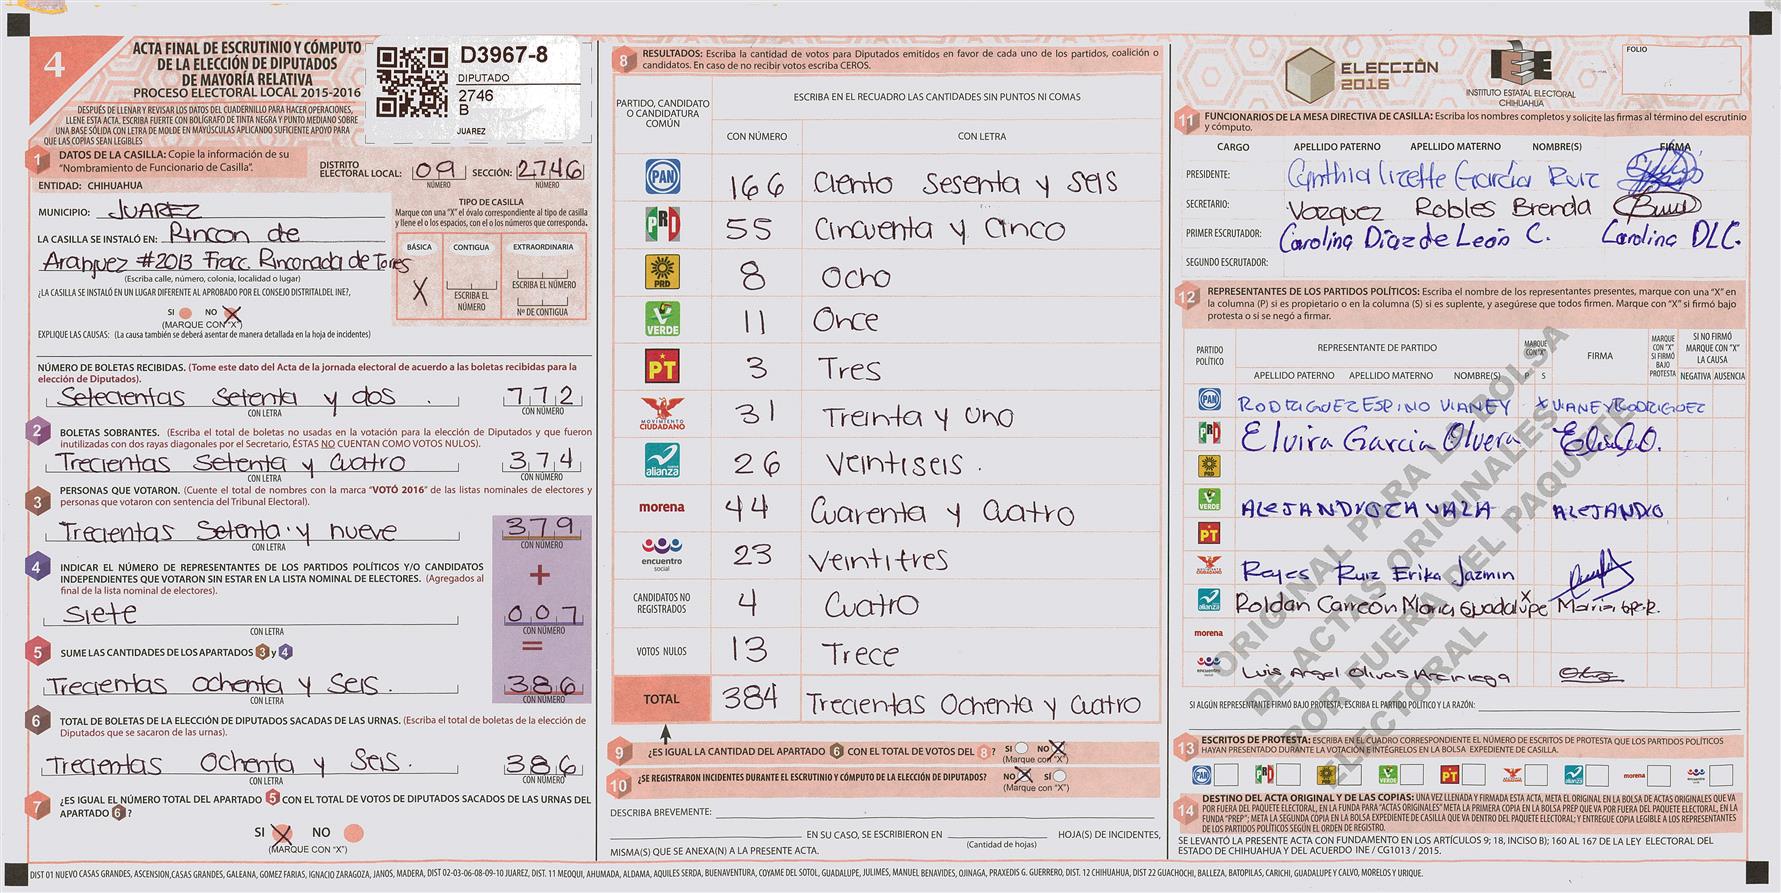 4
ACTA FINAL DE ESCRUTINIO Y CÓMPUTO
DE LA ELECCIÓN DE DIPUTADOS
DE MAYORÍA RELATIVA
PROCESO ELECTORAL LOCAL 2015-2016
DESPUÉS DE LLENAR Y REVISAR LOS DATOS DEL CUADERNILLO PARA HACER OPERACIONES,
LLENE ESTA ACTA. ESCRIBA FUERTE CON BOLÍGRAFO DE TINTA NEGRA Y PUNTO MEDIANO SOBRE
UNA BASE SÓLIDA CON LETRA DE MOLDE EN MAYÚSCULAS APLICANDO SUFICIENTE APOYO PARA
QUE LAS COPIAS SEAN LEGIBLES
D3967-8
DIPUTADO
2746
B
JUAREZ
1 DATOS DE LA CASILLA: Copie la información de su
"Nombramiento de Funcionario de Casilla".
DISTRITO ELECTORAL LOCAL: 09 SECCIÓN: 2746
NÚMERO NÚMERO
ENTIDAD: CHIHUAHUA
MUNICIPIO: JUAREZ
LA CASILLA SE INSTALÓ EN: Rincon de
Aranjuez #2013 Fracc. Rinconada de Torres
(Escriba calle, número, colonia, localidad o lugar)
¿LA CASILLA SE INSTALÓ EN UN LUGAR DIFERENTE AL APROBADO POR EL CONSEJO DISTRITALDEL INE?,
SI NO X
(MARQUE CON "X")
EXPLIQUE LAS CAUSAS: (La causa también se deberá asentar de manera detallada en la hoja de incidentes)
TIPO DE CASILLA
Marque con una "X" el óvalo correspondiente al tipo de casilla
y llene el o los espacios, con el o los números que corresponda.
BÁSICA CONTIGUA EXTRAORDINARIA
X
ESCRIBA EL NÚMERO
ESCRIBA EL NÚMERO
Nº DE CONTIGUA
NÚMERO DE BOLETAS RECIBIDAS. (Tome este dato del Acta de la jornada electoral de acuerdo a las boletas recibidas para la
elección de Diputados).
Setecientas Setenta y dos . 772
CON LETRA CON NÚMERO
2 BOLETAS SOBRANTES. (Escriba el total de boletas no usadas en la votación para la elección de Diputados y que fueron
inutilizadas con dos rayas diagonales por el Secretario, ÉSTAS NO CUENTAN COMO VOTOS NULOS).
Trecientas Setenta y Cuatro 374
CON LETRA CON NÚMERO
3 PERSONAS QUE VOTARON. (Cuente el total de nombres con la marca "VOTÓ 2016" de las listas nominales de electores y
personas que votaron con sentencia del Tribunal Electoral).
Trecientas Setenta y nueve 379
CON LETRA CON NÚMERO
+
4 INDICAR EL NÚMERO DE REPRESENTANTES DE LOS PARTIDOS POLÍTICOS Y/O CANDIDATOS
INDEPENDIENTES QUE VOTARON SIN ESTAR EN LA LISTA NOMINAL DE ELECTORES. (Agregados al
final de la lista nominal de electores).
Siete 007
CON LETRA CON NÚMERO
=
5 SUME LAS CANTIDADES DE LOS APARTADOS 3 y 4
Trecientas Ochenta y Seis. 386
CON LETRA CON NÚMERO
6 TOTAL DE BOLETAS DE LA ELECCIÓN DE DIPUTADOS SACADAS DE LAS URNAS. (Escriba el total de boletas de la elección de
Diputados que se sacaron de las urnas).
Trecientas Ochenta y Seis. 386
CON LETRA CON NÚMERO
7 ¿ES IGUAL EL NÚMERO TOTAL DEL APARTADO 5 CON EL TOTAL DE VOTOS DE DIPUTADOS SACADOS DE LAS URNAS DEL
APARTADO 6 ?
SI X NO
(MARQUE CON "X")
8 RESULTADOS: Escriba la cantidad de votos para Diputados emitidos en favor de cada uno de los partidos, coalición o
candidatos. En caso de no recibir votos escriba CEROS.
PARTIDO, CANDIDATO
O CANDIDATURA
COMÚN
ESCRIBA EN EL RECUADRO LAS CANTIDADES SIN PUNTOS NI COMAS
CON NÚMERO CON LETRA
PAN 166 Ciento Sesenta y Seis
PRI 55 Cincuenta y Cinco
PRD 8 Ocho
VERDE 11 Once
PT 3 Tres
MOVIMIENTO CIUDADANO 31 Treinta y Uno
nueva alianza 26 Veintiseis .
morena 44 Cuarenta y Cuatro
encuentro social 23 Veintitres
CANDIDATOS NO REGISTRADOS 4 Cuatro
VOTOS NULOS 13 Trece
TOTAL 384 Trecientas Ochenta y Cuatro
9 ¿ES IGUAL LA CANTIDAD DEL APARTADO 6 CON EL TOTAL DE VOTOS DEL 8 ? SI NO X
(Marque con "X")
10 ¿SE REGISTRARON INCIDENTES DURANTE EL ESCRUTINIO Y CÓMPUTO DE LA ELECCIÓN DE DIPUTADOS? NO X SÍ
(Marque con "X")
DESCRIBA BREVEMENTE:
EN SU CASO, SE ESCRIBIERON EN HOJA(S) DE INCIDENTES,
(Cantidad de hojas)
MISMA(S) QUE SE ANEXA(N) A LA PRESENTE ACTA.
ELECCIÓN
2016
IEE
INSTITUTO ESTATAL ELECTORAL
CHIHUAHUA
FOLIO
11 FUNCIONARIOS DE LA MESA DIRECTIVA DE CASILLA: Escriba los nombres completos y solicite las firmas al término del escrutinio
y cómputo.
CARGO APELLIDO PATERNO APELLIDO MATERNO NOMBRE(S) FIRMA
PRESIDENTE: Cynthia lizette García Ruiz
SECRETARIO: Vazquez Robles Brenda
PRIMER ESCRUTADOR: Carolina Díaz de León C. Carolina DLC.
SEGUNDO ESCRUTADOR:
12 REPRESENTANTES DE LOS PARTIDOS POLÍTICOS: Escriba el nombre de los representantes presentes, marque con una "X" en
la columna (P) si es propietario o en la columna (S) si es suplente, y asegúrese que todos firmen. Marque con "X" si firmó bajo
protesta o si se negó a firmar.
PARTIDO POLÍTICO
REPRESENTANTE DE PARTIDO
MARQUE CON "X"
FIRMA
MARQUE CON "X" SI FIRMÓ BAJO PROTESTA
SI NO FIRMÓ MARQUE CON "X" LA CAUSA
APELLIDO PATERNO APELLIDO MATERNO NOMBRE(S) P S NEGATIVA AUSENCIA
PAN RODRIGUEZ ESPINO VIANEY X VIANEY RODRIGUEZ
PRI Elvira Garcia Olvera
PRD
VERDE ALEJANDRO ZAVALA ALEJANDRO
PT
MOVIMIENTO CIUDADANO Reyes Ruiz Erika Jazmin
nueva alianza Roldán Carreón Maria Guadalupe X
morena
encuentro social Luis Angel Olivas Arciniega
ORIGINAL PARA LA BOLSA
DE ACTAS ORIGINALES
POR FUERA DEL PAQUETE
ELECTORAL
SI ALGÚN REPRESENTANTE FIRMÓ BAJO PROTESTA, ESCRIBA EL PARTIDO POLÍTICO Y LA RAZÓN:
13 ESCRITOS DE PROTESTA: ESCRIBA EN EL CUADRO CORRESPONDIENTE EL NÚMERO DE ESCRITOS DE PROTESTA QUE LOS PARTIDOS POLÍTICOS
HAYAN PRESENTADO DURANTE LA VOTACIÓN E INTÉGRELOS EN LA BOLSA EXPEDIENTE DE CASILLA.
PAN PRI PRD VERDE PT MOVIMIENTO CIUDADANO alianza morena encuentro social
14 DESTINO DEL ACTA ORIGINAL Y DE LAS COPIAS: UNA VEZ LLENADA Y FIRMADA ESTA ACTA, META EL ORIGINAL EN LA BOLSA DE ACTAS ORIGINALES QUE VA
POR FUERA DEL PAQUETE ELECTORAL, EN LA FUNDA PARA "ACTAS ORIGINALES" META LA PRIMERA COPIA EN LA BOLSA PREP QUE VA POR FUERA DEL PAQUETE ELECTORAL, EN LA
FUNDA "PREP"; META LA SEGUNDA COPIA EN LA BOLSA EXPEDIENTE DE CASILLA QUE VA DENTRO DEL PAQUETE ELECTORAL; Y ENTREGUE COPIA LEGIBLE A LOS REPRESENTANTES
DE LOS PARTIDOS POLÍTICOS SEGÚN EL ORDEN DE REGISTRO.
SE LEVANTÓ LA PRESENTE ACTA CON FUNDAMENTO EN LOS ARTÍCULOS 9; 18, INCISO B); 160 AL 167 DE LA LEY ELECTORAL DEL
ESTADO DE CHIHUAHUA Y DEL ACUERDO INE / CG1013 / 2015.
DIST 01 NUEVO CASAS GRANDES, ASCENSION,CASAS GRANDES, GALEANA, GOMEZ FARIAS, IGNACIO ZARAGOZA, JANOS, MADERA, DIST 02-03-06-08-09-10 JUAREZ, DIST. 11 MEOQUI, AHUMADA, ALDAMA, AQUILES SERDA, BUENAVENTURA, COYAME DEL SOTOL, GUADALUPE, JULIMES, MANUEL BENAVIDES, OJINAGA, PRAXEDIS G. GUERRERO, DIST. 12 CHIHUAHUA, DIST 22 GUACHOCHI, BALLEZA, BATOPILAS, CARICHI, GUADALUPE Y CALVO, MORELOS Y URIQUE.